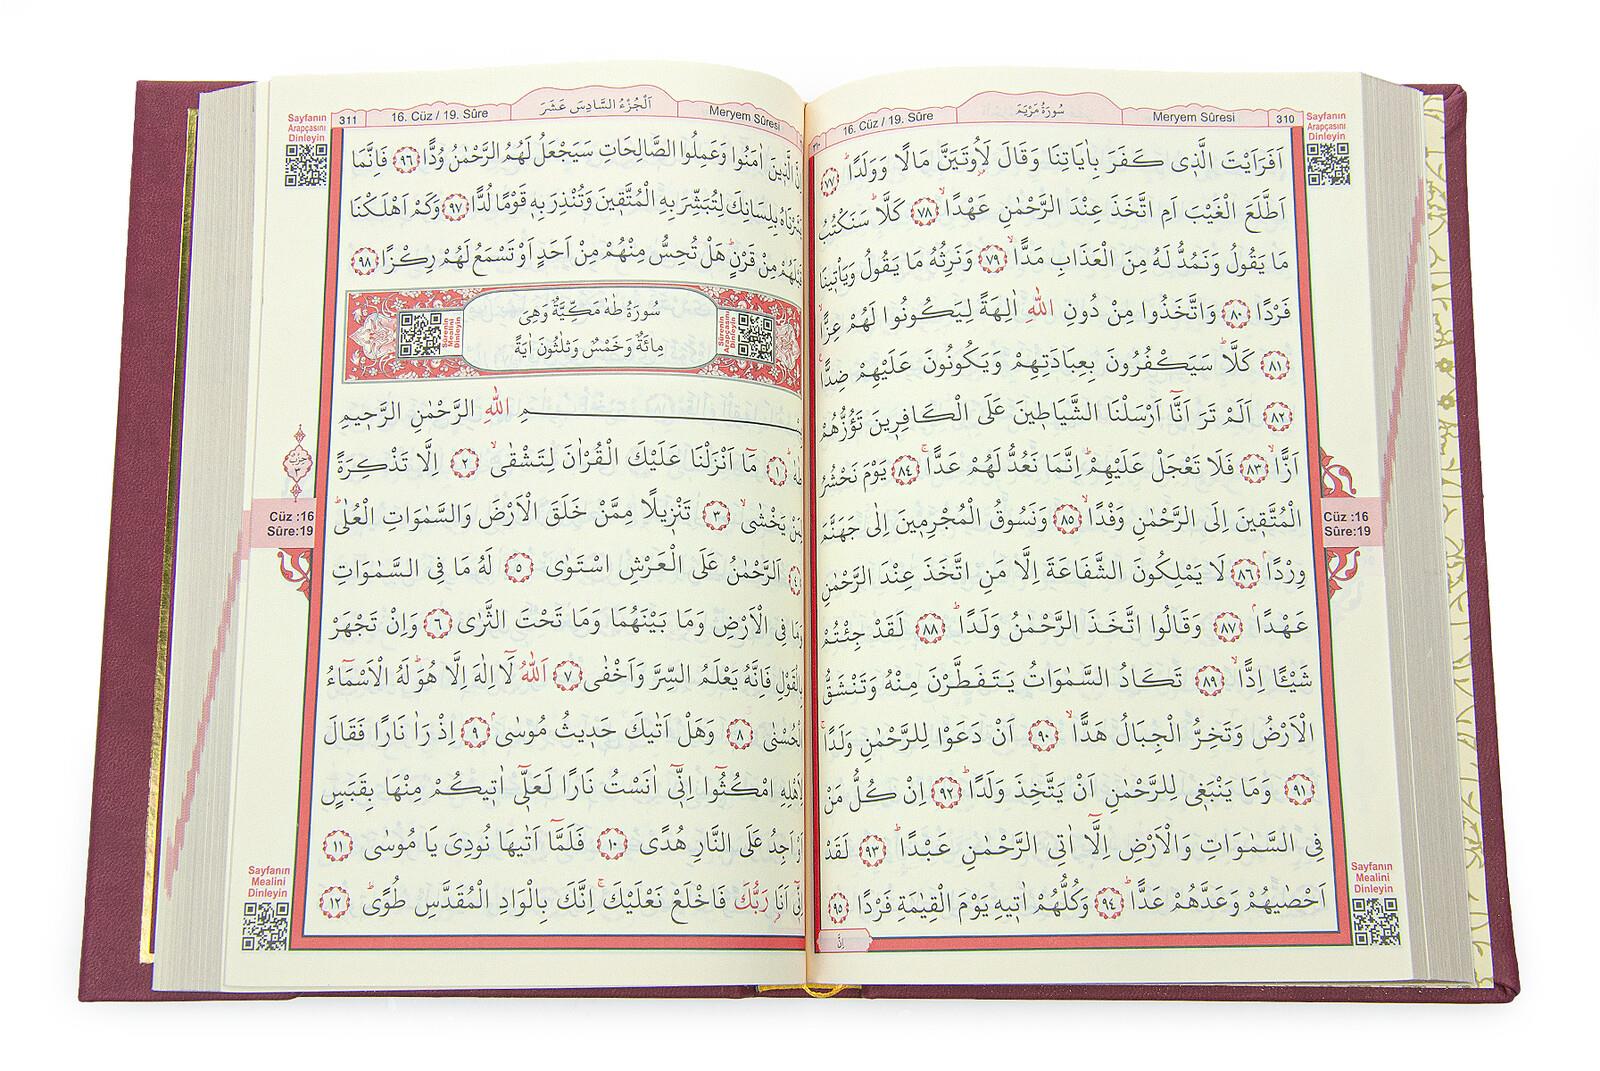 310
Meryem Sûresi
سُورَةُ مَرْيَمَ
16. Cüz / 19. Sûre
Sayfanın
Arapçasını
Dinleyin
اَفَرَاَيْتَ الَّذ۪ي كَفَرَ بِاٰيَاتِنَا وَقَالَ لَاُو۫تَيَنَّ مَالًا وَوَلَدًاۜ ﴿٧٧﴾
اَطَّلَعَ الْغَيْبَ اَمِ اتَّخَذَ عِنْدَ الرَّحْمٰنِ عَهْدًاۙ ﴿٧٨﴾ كَلَّاۜ سَنَكْتُبُ
مَا يَقُولُ وَنَمُدُّ لَهُ مِنَ الْعَذَابِ مَدًّاۙ ﴿٧٩﴾ وَنَرِثُهُ مَا يَقُولُ وَيَأْت۪ينَا
فَرْدًا ﴿٨٠﴾ وَاتَّخَذُوا مِنْ دُونِ اللّٰهِ اٰلِهَةً لِيَكُونُوا لَهُمْ عِزًّاۙ
﴿٨١﴾ كَلَّاۜ سَيَكْفُرُونَ بِعِبَادَتِهِمْ وَيَكُونُونَ عَلَيْهِمْ ضِدًّا۟
﴿٨٢﴾ اَلَمْ تَرَ اَنَّٓا اَرْسَلْنَا الشَّيَاط۪ينَ عَلَى الْكَافِر۪ينَ تَؤُزُّهُمْ
اَزًّاۙ ﴿٨٣﴾ فَلَا تَعْجَلْ عَلَيْهِمْۜ اِنَّمَا نَعُدُّ لَهُمْ عَدًّاۚ ﴿٨٤﴾ يَوْمَ نَحْشُرُ
الْمُتَّق۪ينَ اِلَى الرَّحْمٰنِ وَفْدًاۙ ﴿٨٥﴾ وَنَسُوقُ الْمُجْرِم۪ينَ اِلٰى جَهَنَّمَ
وِرْدًاۢ ﴿٨٦﴾ لَا يَمْلِكُونَ الشَّفَاعَةَ اِلَّا مَنِ اتَّخَذَ عِنْدَ الرَّحْمٰنِ
عَهْدًاۢ ﴿٨٧﴾ وَقَالُوا اتَّخَذَ الرَّحْمٰنُ وَلَدًاۜ ﴿٨٨﴾ لَقَدْ جِئْتُمْ
شَيْـًٔا اِدًّاۙ ﴿٨٩﴾ تَكَادُ السَّمٰوَاتُ يَتَفَطَّرْنَ مِنْهُ وَتَنْشَقُّ
الْاَرْضُ وَتَخِرُّ الْجِبَالُ هَدًّاۙ ﴿٩٠﴾ اَنْ دَعَوْا لِلرَّحْمٰنِ وَلَدًاۚ
﴿٩١﴾ وَمَا يَنْبَغ۪ي لِلرَّحْمٰنِ اَنْ يَتَّخِذَ وَلَدًاۜ ﴿٩٢﴾ اِنْ كُلُّ مَنْ
فِي السَّمٰوَاتِ وَالْاَرْضِ اِلَّٓا اٰتِي الرَّحْمٰنِ عَبْدًاۜ ﴿٩٣﴾ لَقَدْ
اَحْصٰيهُمْ وَعَدَّهُمْ عَدًّاۜ ﴿٩٤﴾ وَكُلُّهُمْ اٰت۪يهِ يَوْمَ الْقِيٰمَةِ فَرْدًا ﴿٩٥﴾
اِنَّ
Cüz :16
Sûre:19
Sayfanın
Mealini
Dinleyin
Meryem Sûresi
اَلْجُزْءُ السَّادِسَ عَشَرَ
16. Cüz / 19. Sûre
311
Sayfanın
Arapçasını
Dinleyin
الَّذ۪ينَ اٰمَنُوا وَعَمِلُوا الصَّالِحَاتِ سَيَجْعَلُ لَهُمُ الرَّحْمٰنُ وُدًّا ﴿٩٦﴾ فَاِنَّمَا
بِلِسَانِكَ لِتُبَشِّرَ بِهِ الْمُتَّق۪ينَ وَتُنْذِرَ بِه۪ قَوْمًا لُدًّا ﴿٩٧﴾ وَكَمْ اَهْلَكْنَا
مِنْ قَرْنٍۜ هَلْ تُحِسُّ مِنْهُمْ مِنْ اَحَدٍ اَوْ تَسْمَعُ لَهُمْ رِكْزًا ﴿٩٨﴾
سُورَةُ طٰهٰ مَكِّيَّةٌ وَهِيَ
مِائَةٌ وَخَمْسٌ وَثَلٰثُونَ اٰيَةً
Sûrenin
Arapçasını
Dinleyin
Sûrenin
Mealini
Dinleyin
بِسْمِ اللّٰهِ الرَّحْمٰنِ الرَّح۪يمِ
﴿١﴾ مَٓا اَنْزَلْنَا عَلَيْكَ الْقُرْاٰنَ لِتَشْقٰىۙ ﴿٢﴾ اِلَّا تَذْكِرَةً
يَخْشٰىۙ ﴿٣﴾ تَنْز۪يلًا مِمَّنْ خَلَقَ الْاَرْضَ وَالسَّمٰوَاتِ الْعُلٰىۜ
﴿٤﴾ اَلرَّحْمٰنُ عَلَى الْعَرْشِ اسْتَوٰى ﴿٥﴾ لَهُ مَا فِي السَّمٰوَاتِ
وَمَا فِي الْاَرْضِ وَمَا بَيْنَهُمَا وَمَا تَحْتَ الثَّرٰى ﴿٦﴾ وَاِنْ تَجْهَرْ
بِالْقَوْلِ فَاِنَّهُ يَعْلَمُ السِّرَّ وَاَخْفٰى ﴿٧﴾ اَللّٰهُ لَٓا اِلٰهَ اِلَّا هُوَۜ لَهُ الْاَسْمَٓاءُ
الْحُسْنٰى ﴿٨﴾ وَهَلْ اَتٰيكَ حَد۪يثُ مُوسٰىۢ ﴿٩﴾ اِذْ رَاٰ نَارًا فَقَالَ
لِاَهْلِهِ امْكُثُٓوا اِنّ۪ٓي اٰنَسْتُ نَارًا لَعَلّ۪ٓي اٰت۪يكُمْ مِنْهَا بِقَبَسٍ
اَوْ اَجِدُ عَلَى النَّارِ هُدًى ﴿١٠﴾ فَلَمَّٓا اَتٰيهَا نُودِيَ يَا مُوسٰى ﴿١١﴾
اِنّ۪ٓي اَنَا۬ رَبُّكَ فَاخْلَعْ نَعْلَيْكَۚ اِنَّكَ بِالْوَادِ الْمُقَدَّسِ طُوًىۜ ﴿١٢﴾
حزب
٣
Cüz :16
Sûre:19
Sayfanın
Mealini
Dinleyin